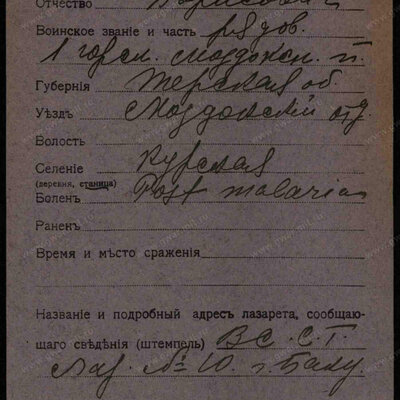 Отчество Борисович
Воинское званіе и часть рядов.
1 горск. моздокск. п.
Губернія Терская об.
Уѣздъ Моздокский отд.
Волость
Селеніе Курская
(деревня, станица)
Боленъ Post malaria
Раненъ
Время и мѣсто сраженія
Названіе и подробный адресъ лазарета, сообщаю-
щаго свѣдѣнія (штемпель) ВС. С. Г.
Лаз. № 10. г. Баку